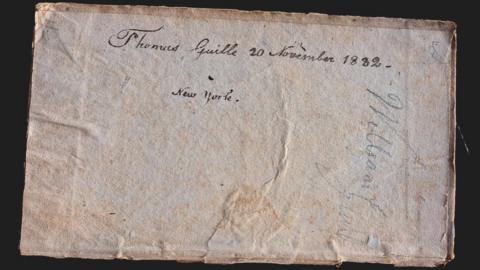 Thomas Guille 20 November 1832 -
New York.
William